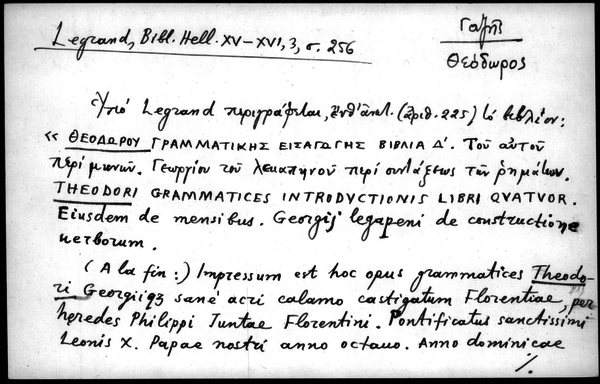 Legrand, Bibl. Hell. XV-XVI, 3, σ. 256
Γαζῆς
Θεόδωρος
Ὑπό Legrand περιγράφεται, ἔνθ' ἀνωτ. (ἀριθ. 225) τό βιβλίον:
« ΘΕΟΔΩΡΟΥ ΓΡΑΜΜΑΤΙΚΗΣ ΕΙΣΑΓΩΓΗΣ ΒΙΒΛΙΑ Δ'. Τοῦ αὐτοῦ
περί μηνῶν. Γεωργίου τοῦ λεκαπηνοῦ περί συντάξεως τῶν ῥημάτων.
THEODORI GRAMMATICES INTRODVCTIONIS LIBRI QVATVOR.
Eiusdem de mensibus. Georgij legapeni de constructione
uerborum.
(A la fin:) Impressum est hoc opus grammatices Theodo-
ri Georgii gz sane acri calamo castigatum Florentiae, per
heredes Philippi Juntae Florentini. Pontificatus sanctissimi
Leonis X. Papae nostri anno octauo. Anno dominicae
./.